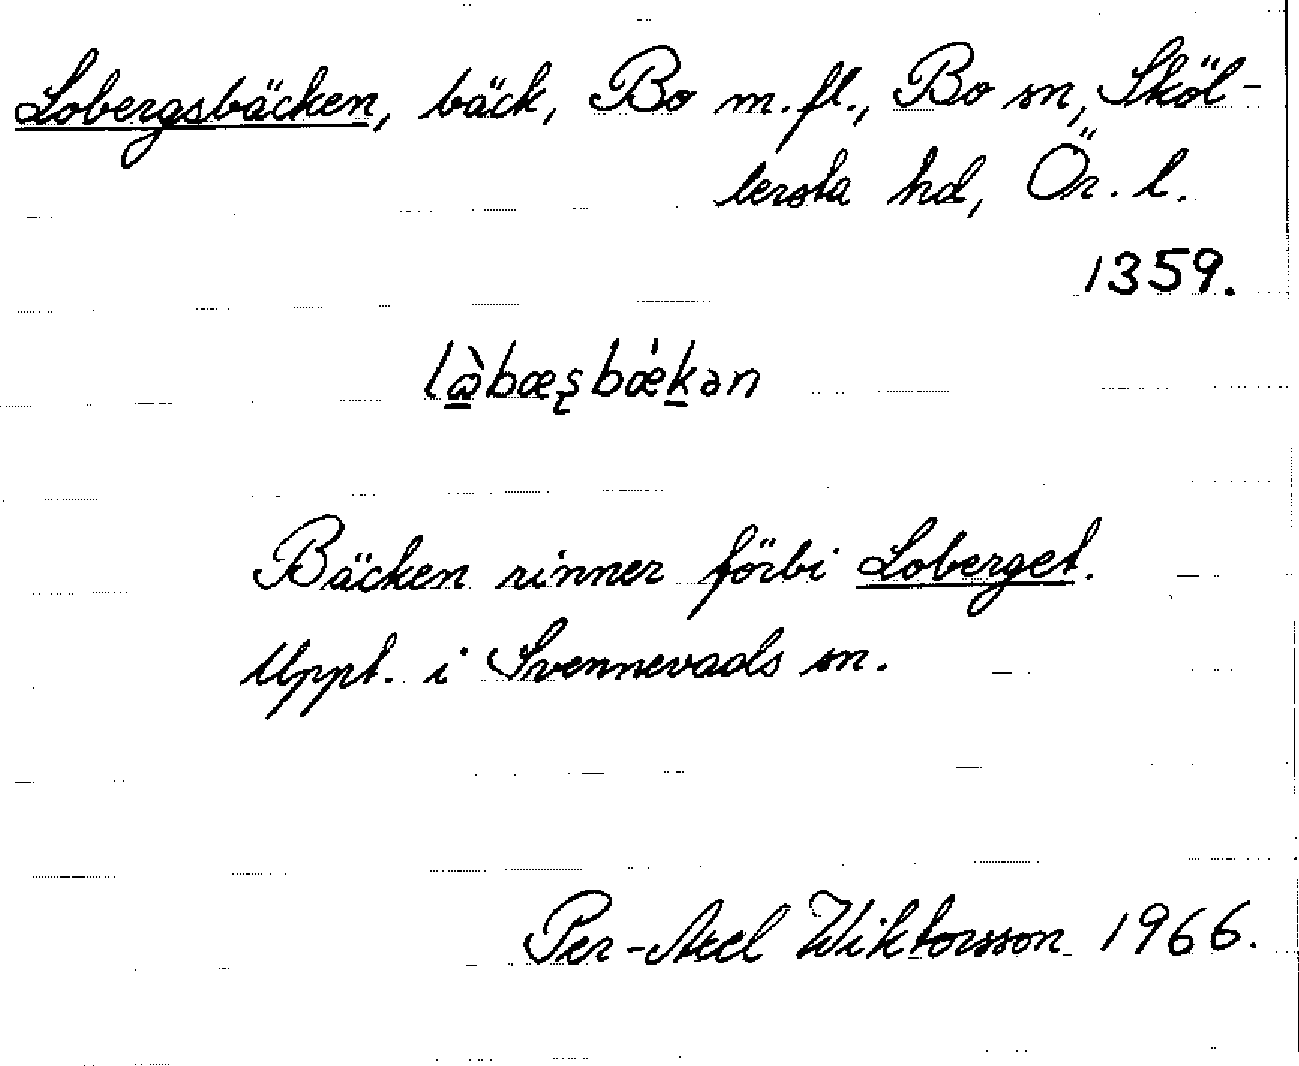 Lobergsbäcken, bäck, Bo m.fl., Bo sn, Sköl-
lersta hd, Ör. l.
1359.
lὼbæʂbǽkən
Bäcken rinner förbi Loberget.
Uppt. i Svennevads sn.
Per-Axel Wiktorsson 1966.